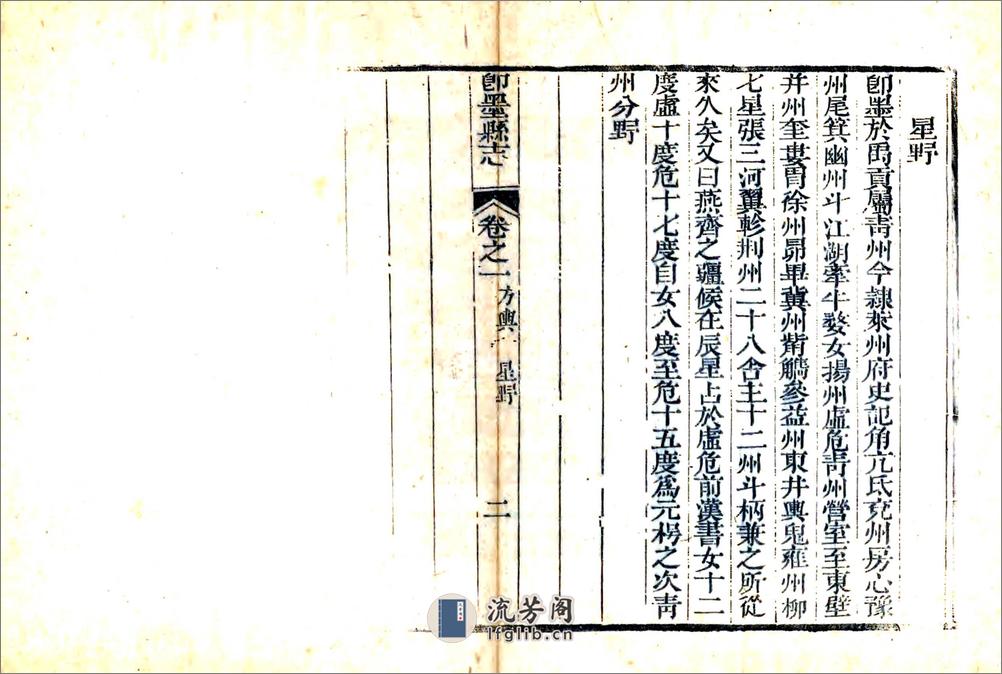 星野
卽墨於禹貢屬靑州今隷萊州府史記角亢氐兗州房心豫
州尾箕幽州斗江湖牽牛婺女揚州虛危靑州營室至東壁
并州奎婁胃徐州昴畢冀州觜觿參益州東井輿鬼雍州柳
七星張三河翼軫荆州二十八舍主十二州斗柄兼之所從
來久矣又曰燕齊之疆候在辰星占於虛危前漢書女十二
度虛十度危十七度自女八度至危十五度爲元枵之次靑
州分野
卽墨縣志
卷之一
方輿
星野
二
流芳阁
lfglib.cn